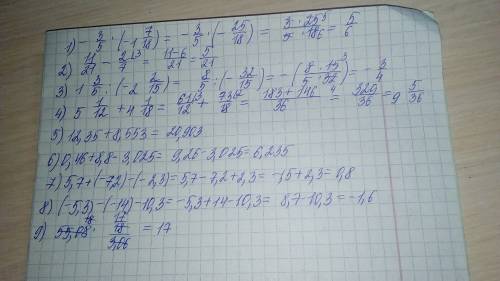 1) -3/5 : (-1 7/18) = -3/5 : (-25/18) = 3 · 25 5/5 · 18 6 = 5/6
2) 11/21 - 2/7 \3 = 11-6/21 = 5/21
3) 1 3/5 : (-2 2/15) = 8/5 : (-32/15) = -(8 · 15 3/5 · 32) = -3/4
4) 5 1/12 + 4 1/18 = 61/12 \3 + 73/18 \2 = 183 + 146/36 = 329/36 = 9 5/36
5) 12,35 + 8,553 = 20,903
6) 0,46 + 8,8 - 3,025 = 9,26 - 3,025 = 6,235
7) 5,7 + (-7,2) - (-2,3) = 5,7 - 7,2 + 2,3 = -1,5 + 2,3 = 0,8
8) (-5,3) - (-14) - 10,3 = -5,3 + 14 - 10,3 = 8,7 - 10,3 = -1,6
9) 18 · 17/18 = 17